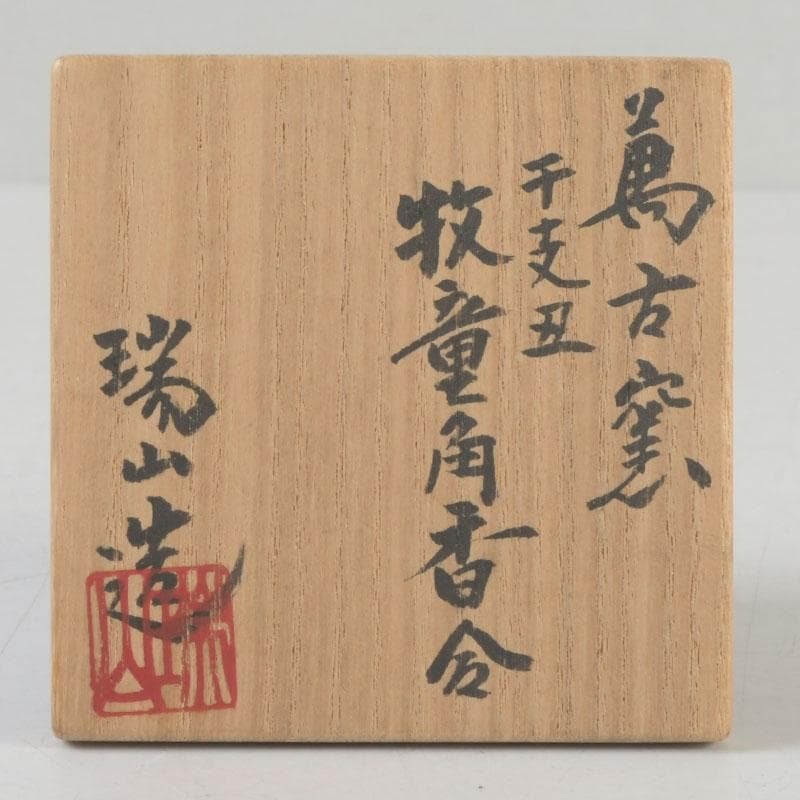 萬古窯
干支丑
牧童角香合
瑞山造
瑞山